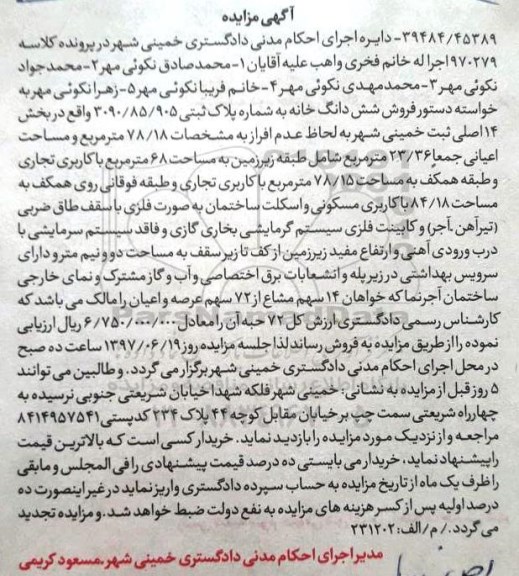 آگهی مزایده
۳۹۴۸۴/۴۵۳۸۹- دایره اجرای احکام مدنی دادگستری خمینی شهر در پرونده کلاسه
۹۷۰۲۷۹ اجرا له خانم فخری واهب علیه آقایان ۱-محمدصادق نکوئی مهر ۲-محمدجواد
نکوئی مهر ۳-محمدمهدی نکوئی مهر ۴-خانم فریبا نکوئی مهر ۵-زهرا نکوئی مهر به
خواسته دستور فروش شش دانگ خانه به شماره پلاک ثبتی ۳۰۹۰/۸۵/۹۰۵ واقع در بخش
۱۴ اصلی ثبت خمینی شهر به لحاظ عدم افراز به مشخصات ۷۸/۱۸ مترمربع و مساحت
اعیانی جمعا ۲۳/۳۶ مترمربع شامل طبقه زیرزمین به مساحت ۶۸ مترمربع با کاربری تجاری
و طبقه همکف به مساحت ۷۸/۱۵ مترمربع با کاربری تجاری و طبقه فوقانی روی همکف به
مساحت ۸۴/۱۸ با کاربری مسکونی و اسکلت ساختمان به صورت فلزی با سقف طاق ضربی
(تیرآهن.آجر) و کابینت فلزی سیستم گرمایشی بخاری گازی و فاقد سیستم سرمایشی با
درب ورودی آهنی و ارتفاع مفید زیرزمین از کف تا زیر سقف به مساحت دو و نیم مترو دارای
سرویس بهداشتی در زیر پله و انشعابات برق اختصاصی و آب و گاز مشترک و نمای خارجی
ساختمان آجرنما که خواهان ۱۴ سهم مشاع از ۷۲ سهم عرصه و اعیان را مالک می باشد که
کارشناس رسمی دادگستری ارزش کل ۷۲ حبه آن را معادل ۶/۷۵۰/۰۰۰/۰۰۰ ریال ارزیابی
نموده را از طریق مزایده به فروش رساند لذا جلسه مزایده روز ۱۳۹۷/۰۶/۱۹ ساعت ده صبح
در محل اجرای احکام مدنی دادگستری خمینی شهر برگزار می گردد. و طالبین می توانند
۵ روز قبل از مزایده به نشانی: خمینی شهر فلکه شهدا خیابان شریعتی جنوبی نرسیده به
چهارراه شریعتی سمت چپ بر خیابان مقابل کوچه ۴۴ پلاک ۲۳۴ کدپستی ۸۴۱۴۹۵۷۵۴۱
مراجعه و از نزدیک مورد مزایده را بازدید نماید. خریدار کسی است که بالاترین قیمت
را پیشنهاد نماید، خریدار می بایستی ده درصد قیمت پیشنهادی را فی المجلس و مابقی
را ظرف یک ماه از تاریخ مزایده به حساب سپرده دادگستری واریز نماید در غیر اینصورت ده
درصد اولیه پس از کسر هزینه های مزایده به نفع دولت ضبط خواهد شد. و مزایده تجدید
می گردد./ م/الف: ۲۳۱۲۰۲
مدیر اجرای احکام مدنی دادگستری خمینی شهر.مسعود کریمی